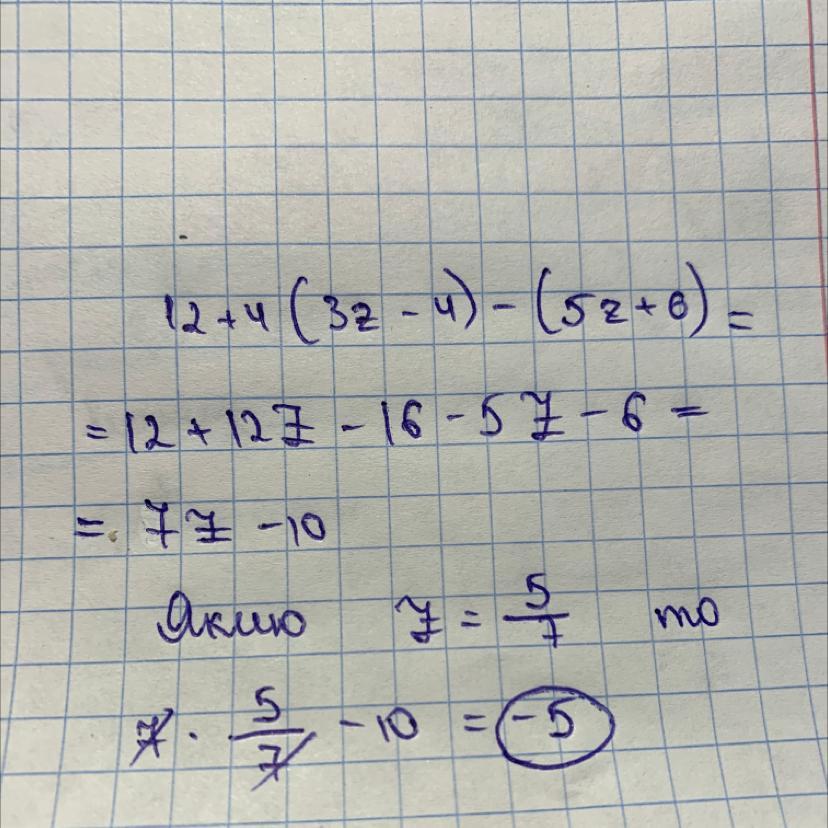 12 + 4 (3z - 4) - (5z + 6) =
= 12 + 12z - 16 - 5z - 6 =
= 7z - 10
Якщо z = 5/7 то
7 · 5/7 - 10 = -5